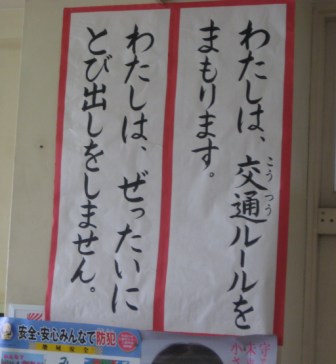 わたしは、交通ルールを
まもります。
わたしは、ぜったいに
とび出しをしません。
安全・安心みんなで防犯